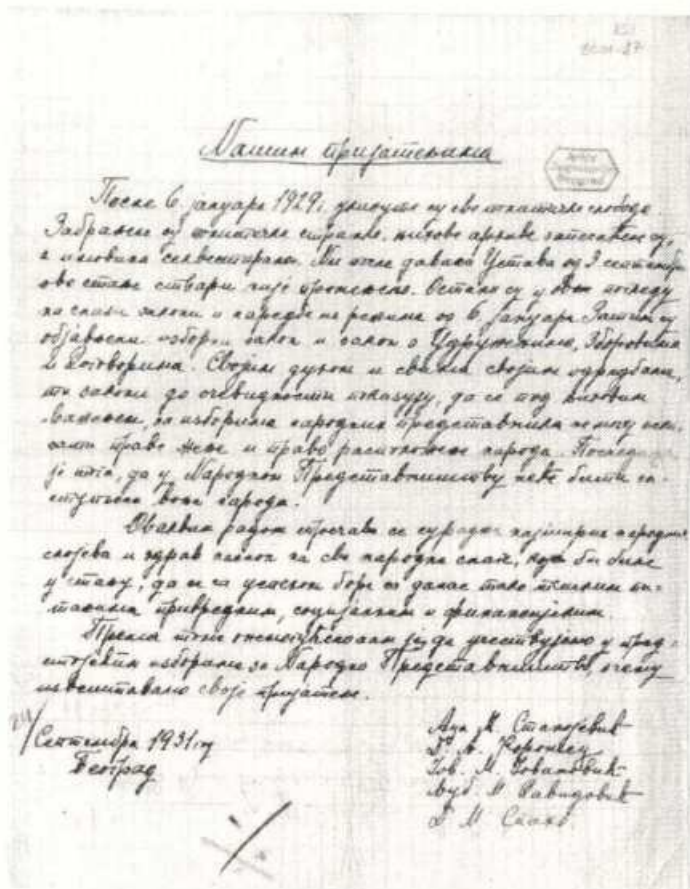 Нашим пријатељима
После 6 јануара 1929 г. укинуте су све политичке слободе.
Забрањене су политичке странке, њихове архиве заплењене су,
а имовина секвестирана. Ни после давања Устава од 3 септембра
ово стање ствари није промењено. Остали су у овом погледу
на снази закони и наредбе режима од 6 јануара. Затим су
објављени изборни закон и закон о Удружењима, Зборовима
и Договорима. Својим духом и свима својим одредбама,
ти закони до очевидности показују, да се под њиховим
на изборима народних представника не могу
праве жеље и право расположење народа. Последица
је тога, да у Народном Представништву неће бити за-
ступљена воља народа.
Оваквим радом спречава се сурадња најширих народних
слојева и здрав на све народне снаге, које би биле
у стању, да се са успехом боре са данас тако тешким пи-
тањима привредним, социјалним и финансијским.
Према томе онемогућено нам је да учествујемо у пред-
стојећим изборима за Народно Представништво, о чему
извештавамо своје пријатеље.
Септембра 1931 год
Београд
Аца М. Станојевић
Др. А. Корошец
Јов. М. Јовановић
Љуб. М. Давидовић
Др М. Спахо